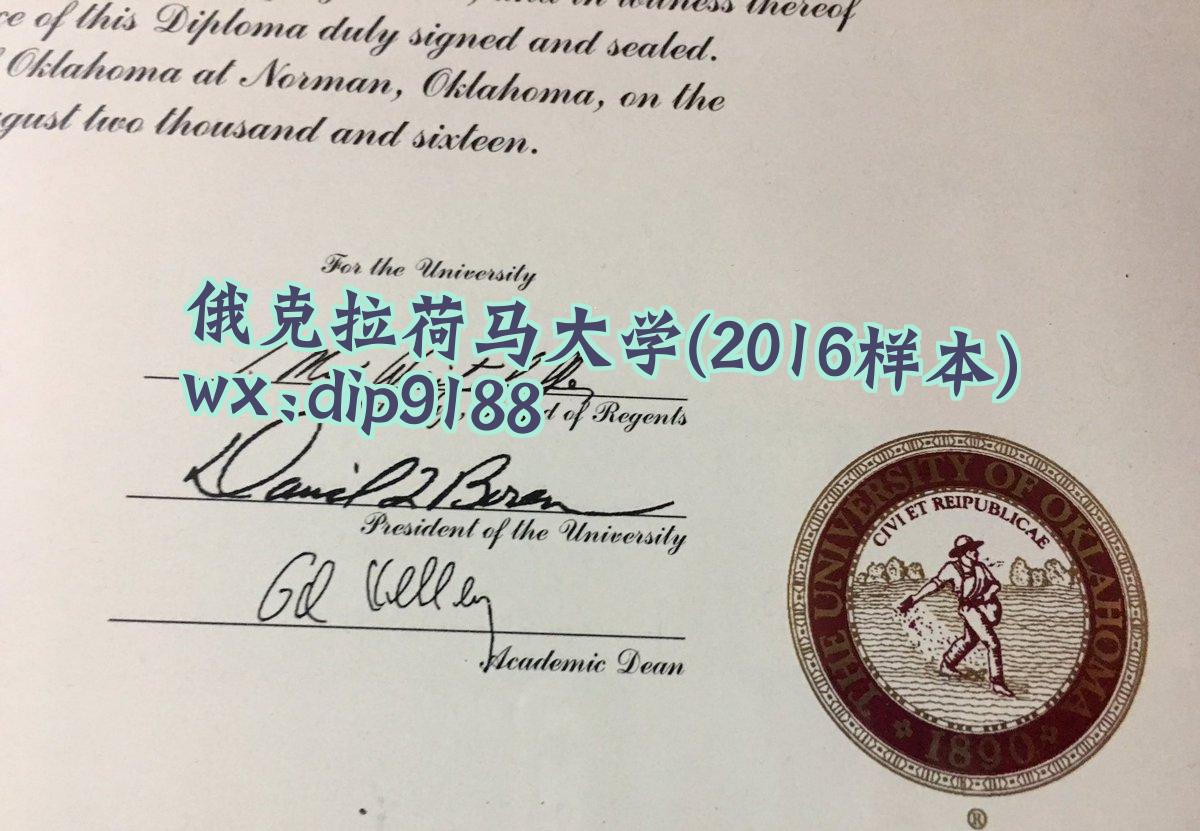 , and in witness thereof
ce of this Diploma duly signed and sealed.
Oklahoma at Norman, Oklahoma, on the
gust two thousand and sixteen.
For the University
俄克拉荷马大学(2016样本)
wx:dip9188
d of Regents
David L Boren
President of the University
Ed Kelley
Academic Dean
THE UNIVERSITY OF OKLAHOMA
CIVI ET REIPUBLICAE
1890
®